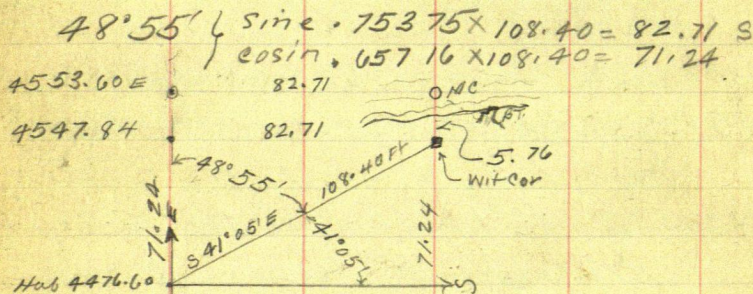 48°55' { Sine .75375 × 108.40 = 82.71 S
cosin .65716 × 108.40 = 71.24
4553.60 E 82.71 MC
4547.84 82.71
5.76
Wit Cor
48°55'
108.40 Ft
71.24
E
S 41°05' E
41°05'
71.24
Hub 4476.60 S